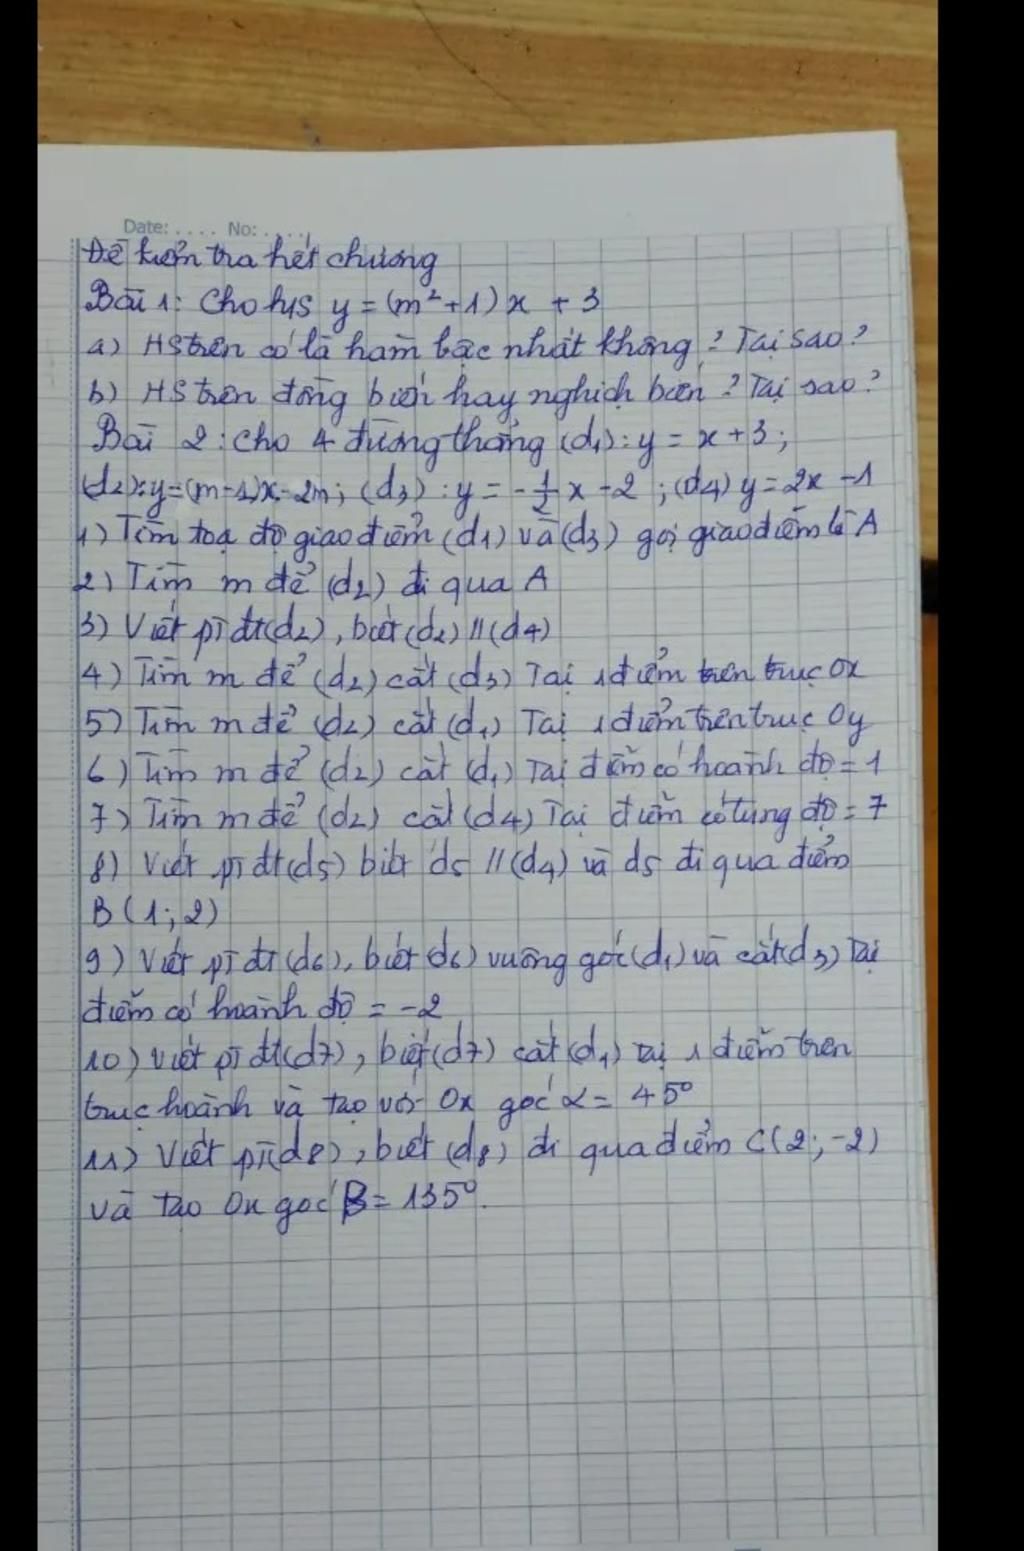 Date: .... No: ....
Đề kiểm tra hết chương
Bài 1: Cho h/s y = (m² + 1) x + 3
a) HS trên có là hàm bậc nhất không? Tại sao?
b) HS trên đồng biến hay nghịch biến? Tại sao?
Bài 2: Cho 4 đường thẳng (d₁): y = x + 3;
(d₂): y = (m-1)x - 2m; (d₃): y = -1/2 x - 2; (d4) y = 2x - 1
1) Tìm toạ độ giao điểm (d1) và (d3) gọi giao điểm là A
2) Tìm m để (d₂) đi qua A
3) Viết pt đt (d₂), biết (d₂) // (d4)
4) Tìm m để (d₂) cắt (d₃) Tại 1 điểm trên trục Ox
5) Tìm m để (d₂) cắt (d₁) Tại 1 điểm trên trục Oy
6) Tìm m để (d₂) cắt (d₁) Tại điểm có hoành độ = 1
7) Tìm m để (d₂) cắt (d4) Tại điểm có tung độ = 7
8) Viết pt đt (d5) biết d5 // (d4) và d5 đi qua điểm
B (1; 2)
9) Viết pt đt (d6), biết (d6) vuông góc (d₁) và cắt (d3) Tại
điểm có hoành độ = -2
10) Viết pt đt (d7), biết (d7) cắt (d₁) tại 1 điểm trên
trục hoành và tạo với Ox góc α = 45°
11) Viết pt (d8), biết (d8) đi qua điểm C(2; -2)
và tạo Ox góc β = 135°.